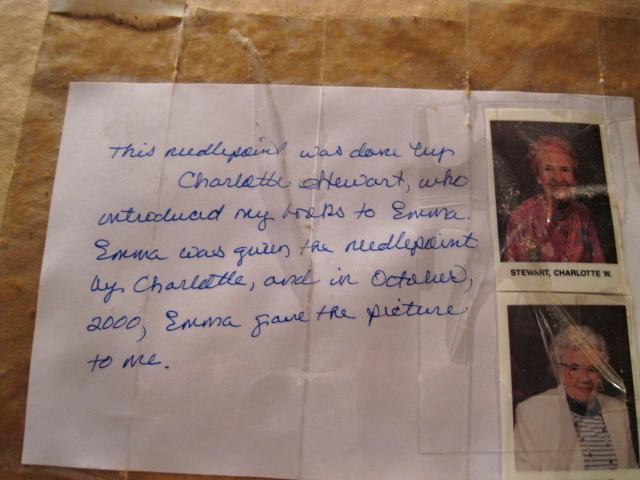 This needlepoint was done by
Charlotte Stewart, who
introduced my books to Emma.
Emma was given the needlepoint
by Charlotte, and in October,
2000, Emma gave the picture
to me.
STEWART, CHARLOTTE W.